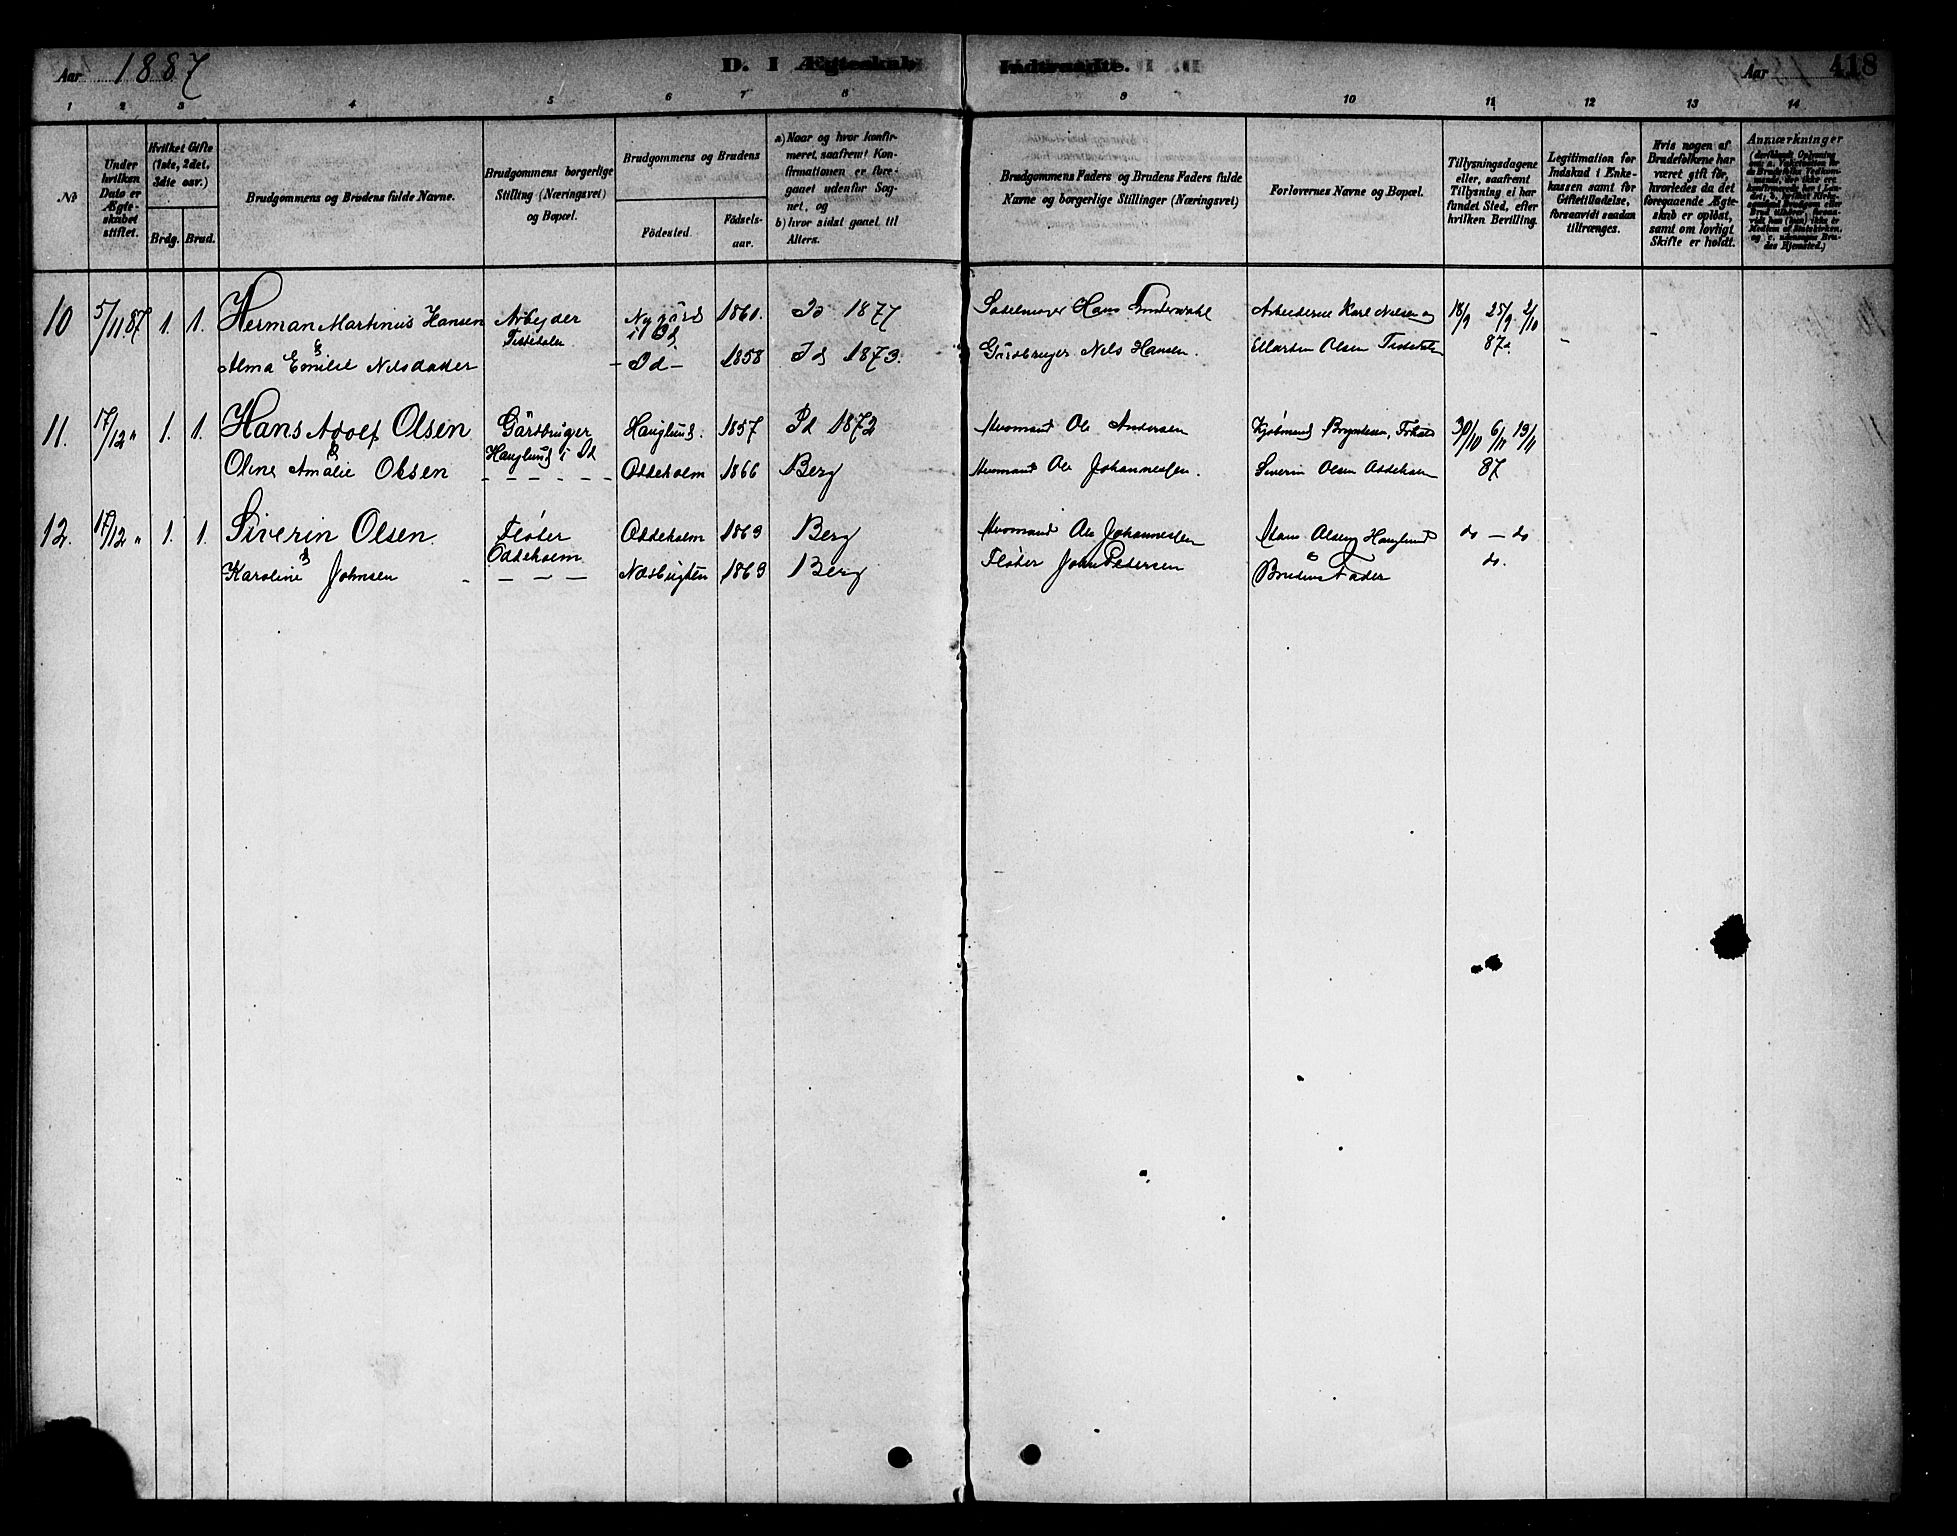 Aar 1887 D. I Ægteskab Indtraadte. Aar 418
1 2 3 4 5 6 7 8 9 10 11 12 13 14
№
Under hvilken Dato er Ægteskabet stiftet.
Hvilket Gifte (1ste, 2det, 3die osv.)
Brdg. Brud.
Brudgommens og Brudens fulde Navne.
Brudgommens borgerlige Stilling (Næringsvei) og Bopæl.
Brudgommens og Brudens
Födested. Födsels-aar.
a) Naar og hvor konfirmeret, saafremt Konfirmationen er foregaaet udenfor Sognet, og
b) hvor sidst gaaet til Alters.
Brudgommens Faders og Brudens Faders fulde Navne og borgerlige Stillinger (Næringsvei)
Forlovernes Navne og Bopæl.
Tillysningsdagene eller, saafremt Tillysning ei har fundet Sted, efter hvilken Bevilling.
Legitimation for Indskud i Enkekassen samt for Giftetilladelse, forsaavidt saadan tiltrænges.
Hvis nogen af Brudefolkene har været gift för, hvorledes da det foregaaende Ægteskab er oplöst, samt om lovligt Skifte er holdt.
Anmærkninger
10 5/11 87 1. 1. Herman Martinus Hansen Arbejder Nygård 1861. Id 1877 Sadelmager Hans Arbeiderne Karl Nilsen og 18/9 25/9 2/10
& Tistedalen i Id
Alma Emilie Nilsdatter - Id - 1858 Id 1873. Gårdbruger Nils Hansen. Martin Olsen Tistedalen 87. -
11. 17/12 " 1. 1. Hans Adolf Olsen Gårdbruger Hauglund. 1857 Id 1872 Ole Andersen Kjøbmand 30/10 6/11 13/11
& Hauglund i Id
Oline Amalie Olsen - - - - - - Oddeholm 1866 Berg Ole Johannessen. Siverin Olsen 87
12. 17/12 " 1. 1. Siverin Olsen. Fløter Oddeholm 1863 Berg Ole Johannessen Hans Olsen Hauglund do - do
& Oddeholm &
Karoline Johnsen - - - - - Næsbugten 1863 Berg Fløter John Pedersen Brudens Fader do.